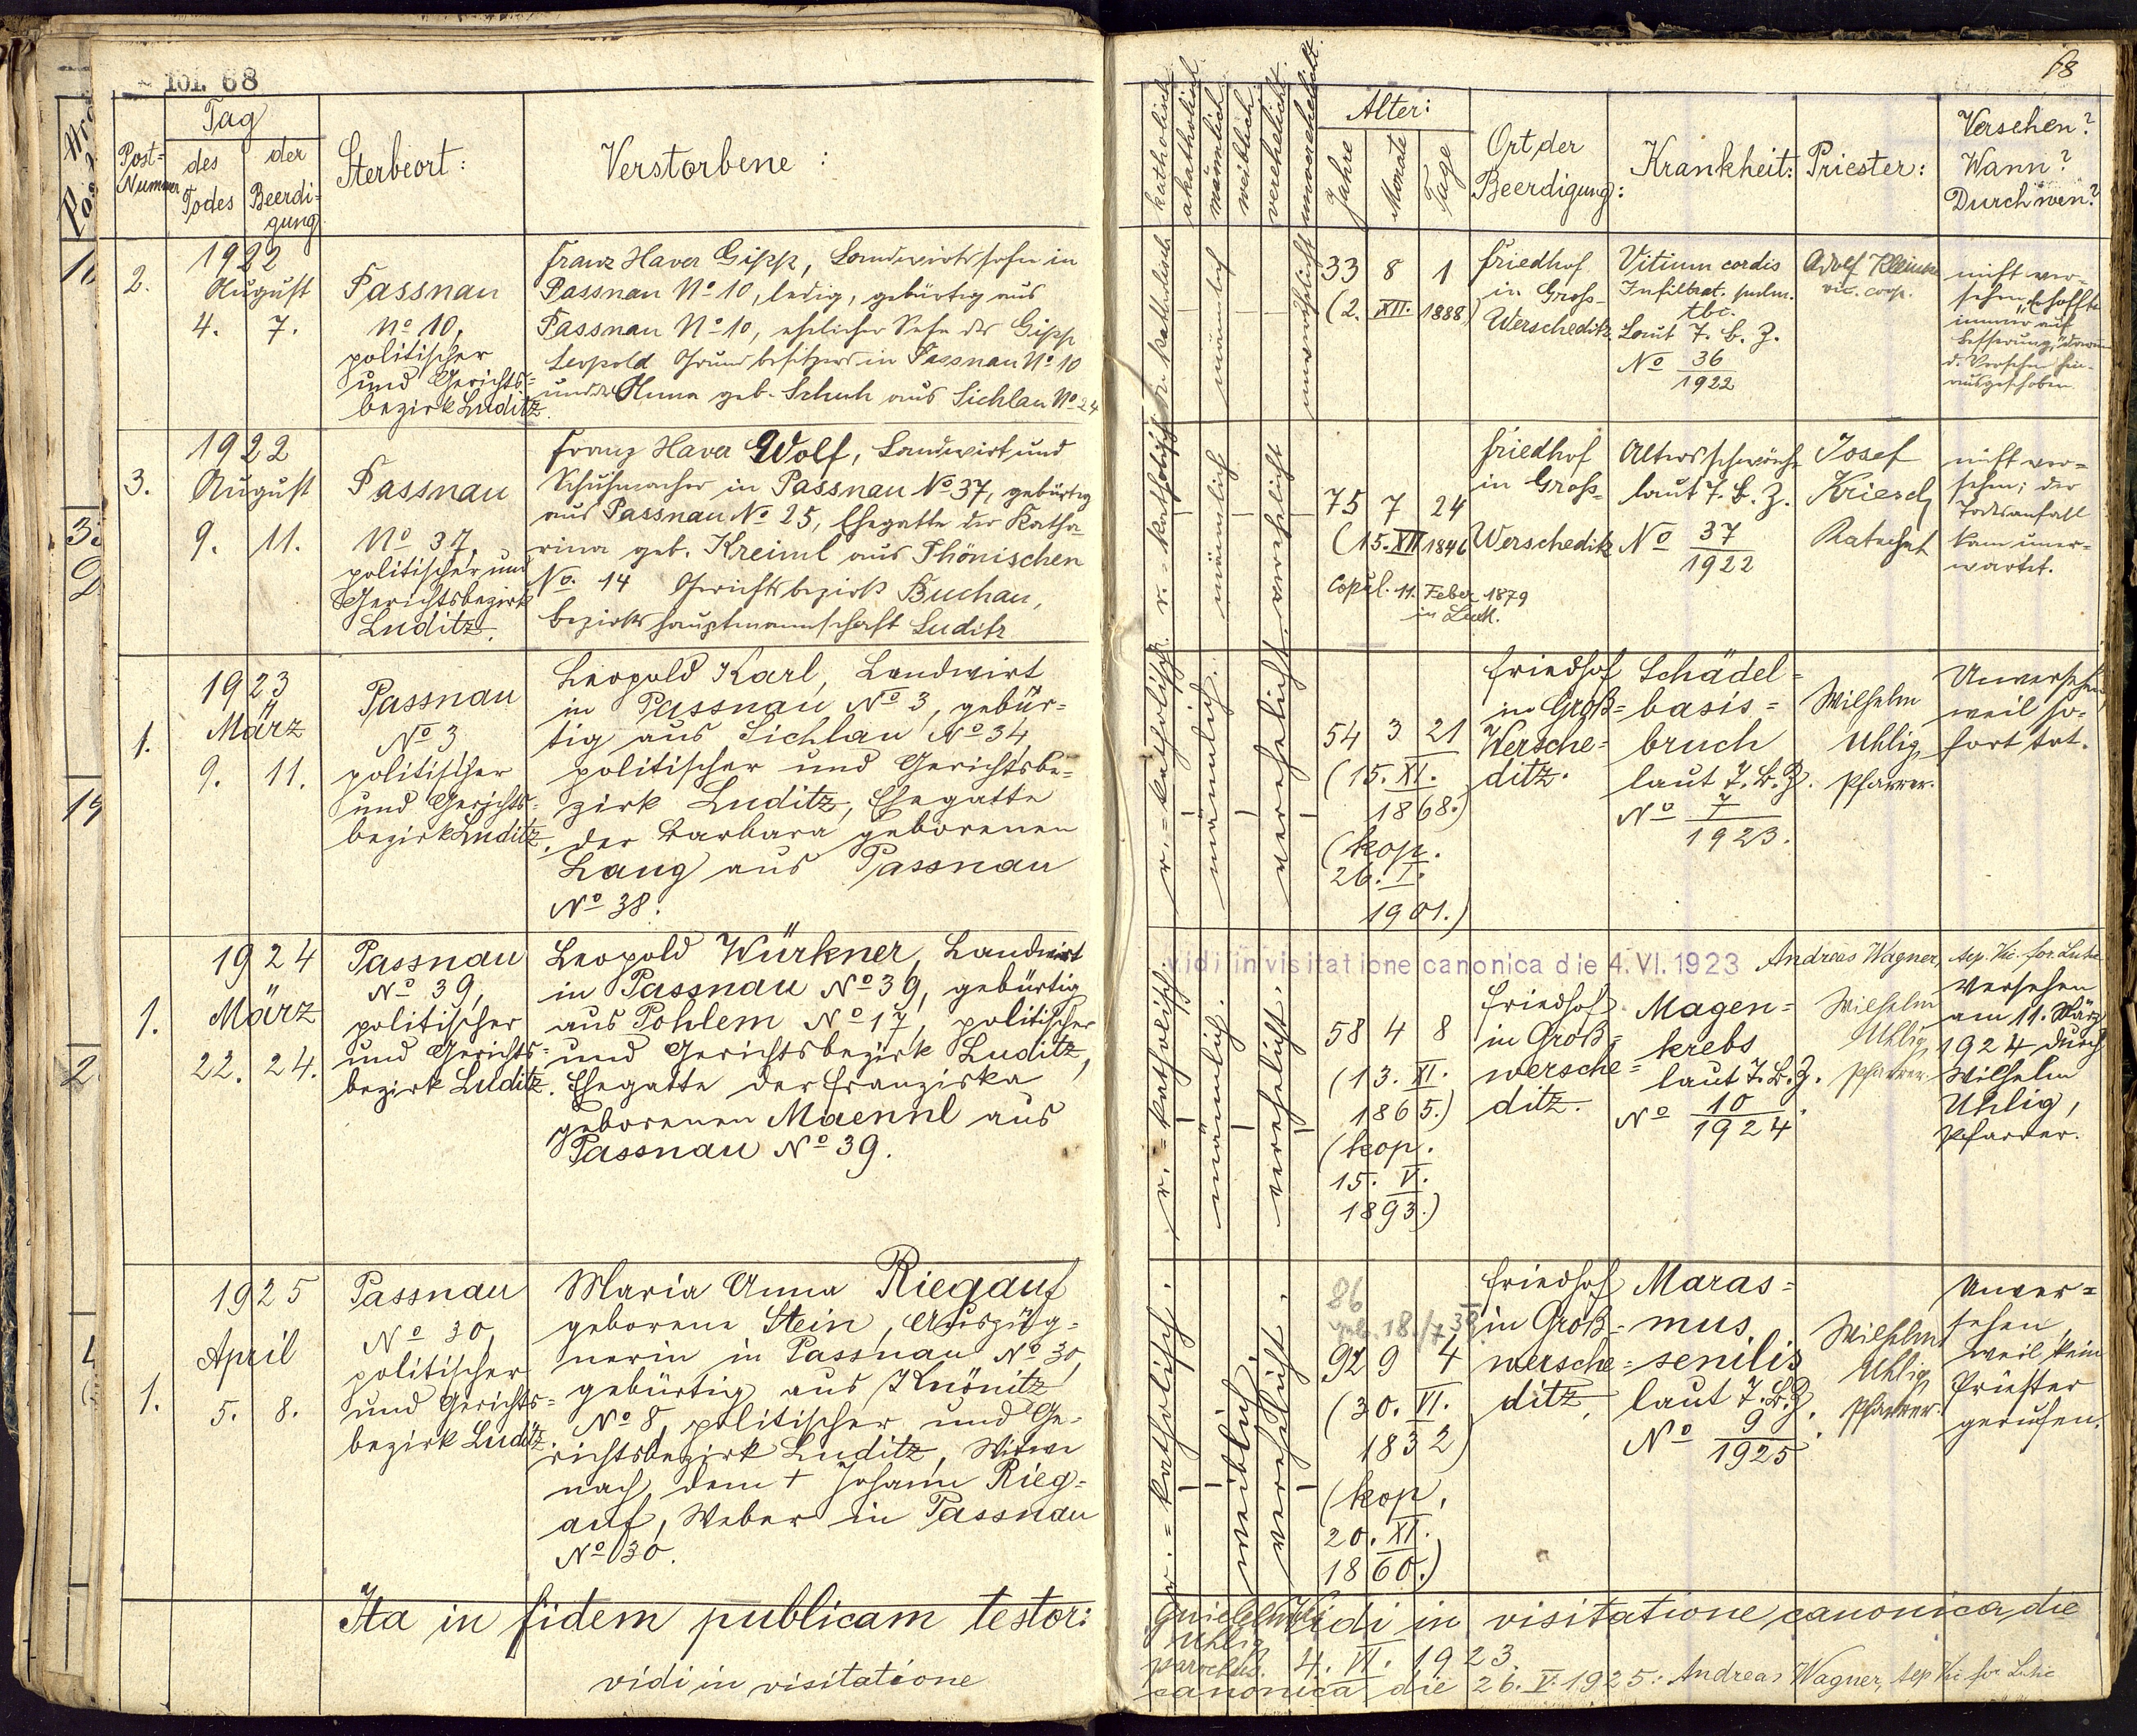 fol. 68
68
Post-
Nummer
Tag
des
Todes
der
Beerdi-
gung
Sterbeort:
Verstorbene :
katholisch
akatholisch
männlich
weiblich
verehelicht
unverehelicht
Alter:
Jahre
Monate
Tage
Ort der
Beerdigung:
Krankheit:
Priester:
Versehen?
Wann?
Durch wen?
2.
1922
August
4. 7.
Passnau
No 10,
politischer
und Gerichts-
bezirk Luditz.
Franz Xaver Gipp, Landwirtssohn in
Passnau No 10, ledig, gebürtig aus
Passnau No 10, ehelicher Sohn des Gipp
Leopold Grundbesitzers in Passnau No 10
und der Anna geb. Schuh aus Lichlau No 24
r. = katholisch
männlich
unverehelicht
33 8 1
(2. XII. 1888)
Friedhof
in Gross-
Werscheditz
Vitium cordis
Infiltrat. pulm.
tbc.
Laut T. B. Z.
No 36
1922
Adolf
vic. coop.
nicht ver-
sehen, hoffte
immer auf
Besserung, darum
d. Versehen hin-
ausgeschoben.
3.
1922
August
9. 11.
Passnau
No 37,
politischer und
Gerichtsbezirk
Luditz.
Franz Xaver Wolf, Landwirt und
Schuhmacher in Passnau No 37, gebürtig
aus Passnau No 25, Ehegatte der Katha
rina geb. Kreiml aus Thönischen
No. 14 Gerichtsbezirk Buchau,
Bezirkshauptmannschaft Luditz
r. = katholisch
männlich
verehelicht
75 7 24
(15. XII 1846
Copul. 11. Feber 1879
in Lub.
Friedhof
in Gross-
Werscheditz
Altersschwäche
laut T. B. Z.
No 37
1922
Josef
Kriesch
Katechet
nicht ver-
sehen; der
Todesanfall
kam uner-
wartet.
1.
1923
März
9. 11.
Passnau
No 3
politischer
und Gerichts-
bezirk Luditz.
Leopold Karl, Landwirt
in Passnau No 3, gebür-
tig aus Lichlau No 34,
politischer und Gerichtsbe-
zirk Luditz, Ehegatte
der Barbara geborenen
Lang aus Passnau
No 38.
r. = katholisch.
männlich.
verehelicht.
54 3 21
(15. XI.
1868.)
(kop.
26. I.
1901.)
Friedhof
in Groß-
Wersche-
ditz.
Schädel-
basis-
bruch
laut T. B. Z.
No 7
1923.
Wilhelm
Uhlig,
Pfarrer.
Unversehen,
weil so-
fort tot.
vidi in visitatione canonica die 4. VI. 1923 Andreas Wagner,
1.
1924
März
22. 24.
Passnau
No 39,
politischer
und Gerichts-
bezirk Luditz.
Leopold Würkner, Landwirt
in Passnau No 39, gebürtig
aus Pohlem No 17, politischer
und Gerichtsbezirk Luditz,
Ehegatte der Franziska
geborenen Maennl aus
Passnau No 39.
r. = katholisch.
männlich.
verehelicht.
58 4 8
(13. XI.
1865.)
(kop.
15. V.
1893.)
Friedhof
in Groß-
wersche-
ditz.
Magen-
krebs
laut T. B. Z.
No 10
1924.
Wilhelm
Uhlig,
Pfarrer.
Versehen
am 11. März
1924 durch
Wilhelm
Uhlig,
Pfarrer.
1.
1925
April
5. 8.
Passnau
No 30,
politischer
und Gerichts-
bezirk Luditz.
Maria Anna Riegauf
geborene Stein, Auszüg-
nerin in Passnau No 30,
gebürtig aus Knönitz
No 8, politischer und Ge-
richtsbezirk Luditz, Witwe
nach dem † Johann Rieg-
auf, Weber in Passnau
No 30.
r. = katholisch.
weiblich.
verehelicht.
86
geb. 18./7 38
92 9 4
(30. VI.
1832)
(kop.
20. XI.
1860.)
Friedhof
in Groß-
wersche-
ditz.
Maras-
mus
senilis
laut T. B. Z.
No 9
1925.
Wilhelm
Uhlig,
Pfarrer.
Unver-
sehen,
weil kein
Priester
gerufen.
Ita in fidem publicam testor:
Uhlig
parochus.
Vidi in visitatione canonica die
4. VI. 1923.
vidi in visitatione
canonica die 26. V. 1925: Andreas Wagner,